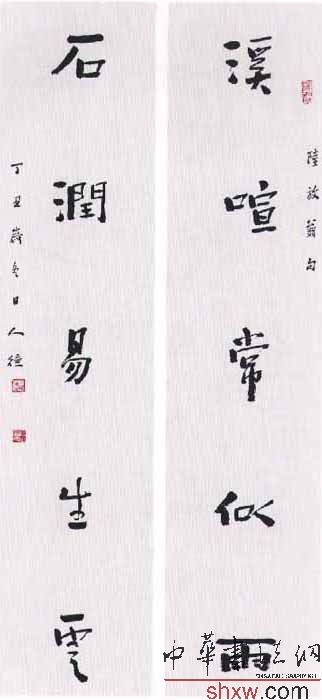 陸放翁句
溪喧常似雨
石潤易生雲
丁丑歲冬日人德
中華書法網
shxw.com